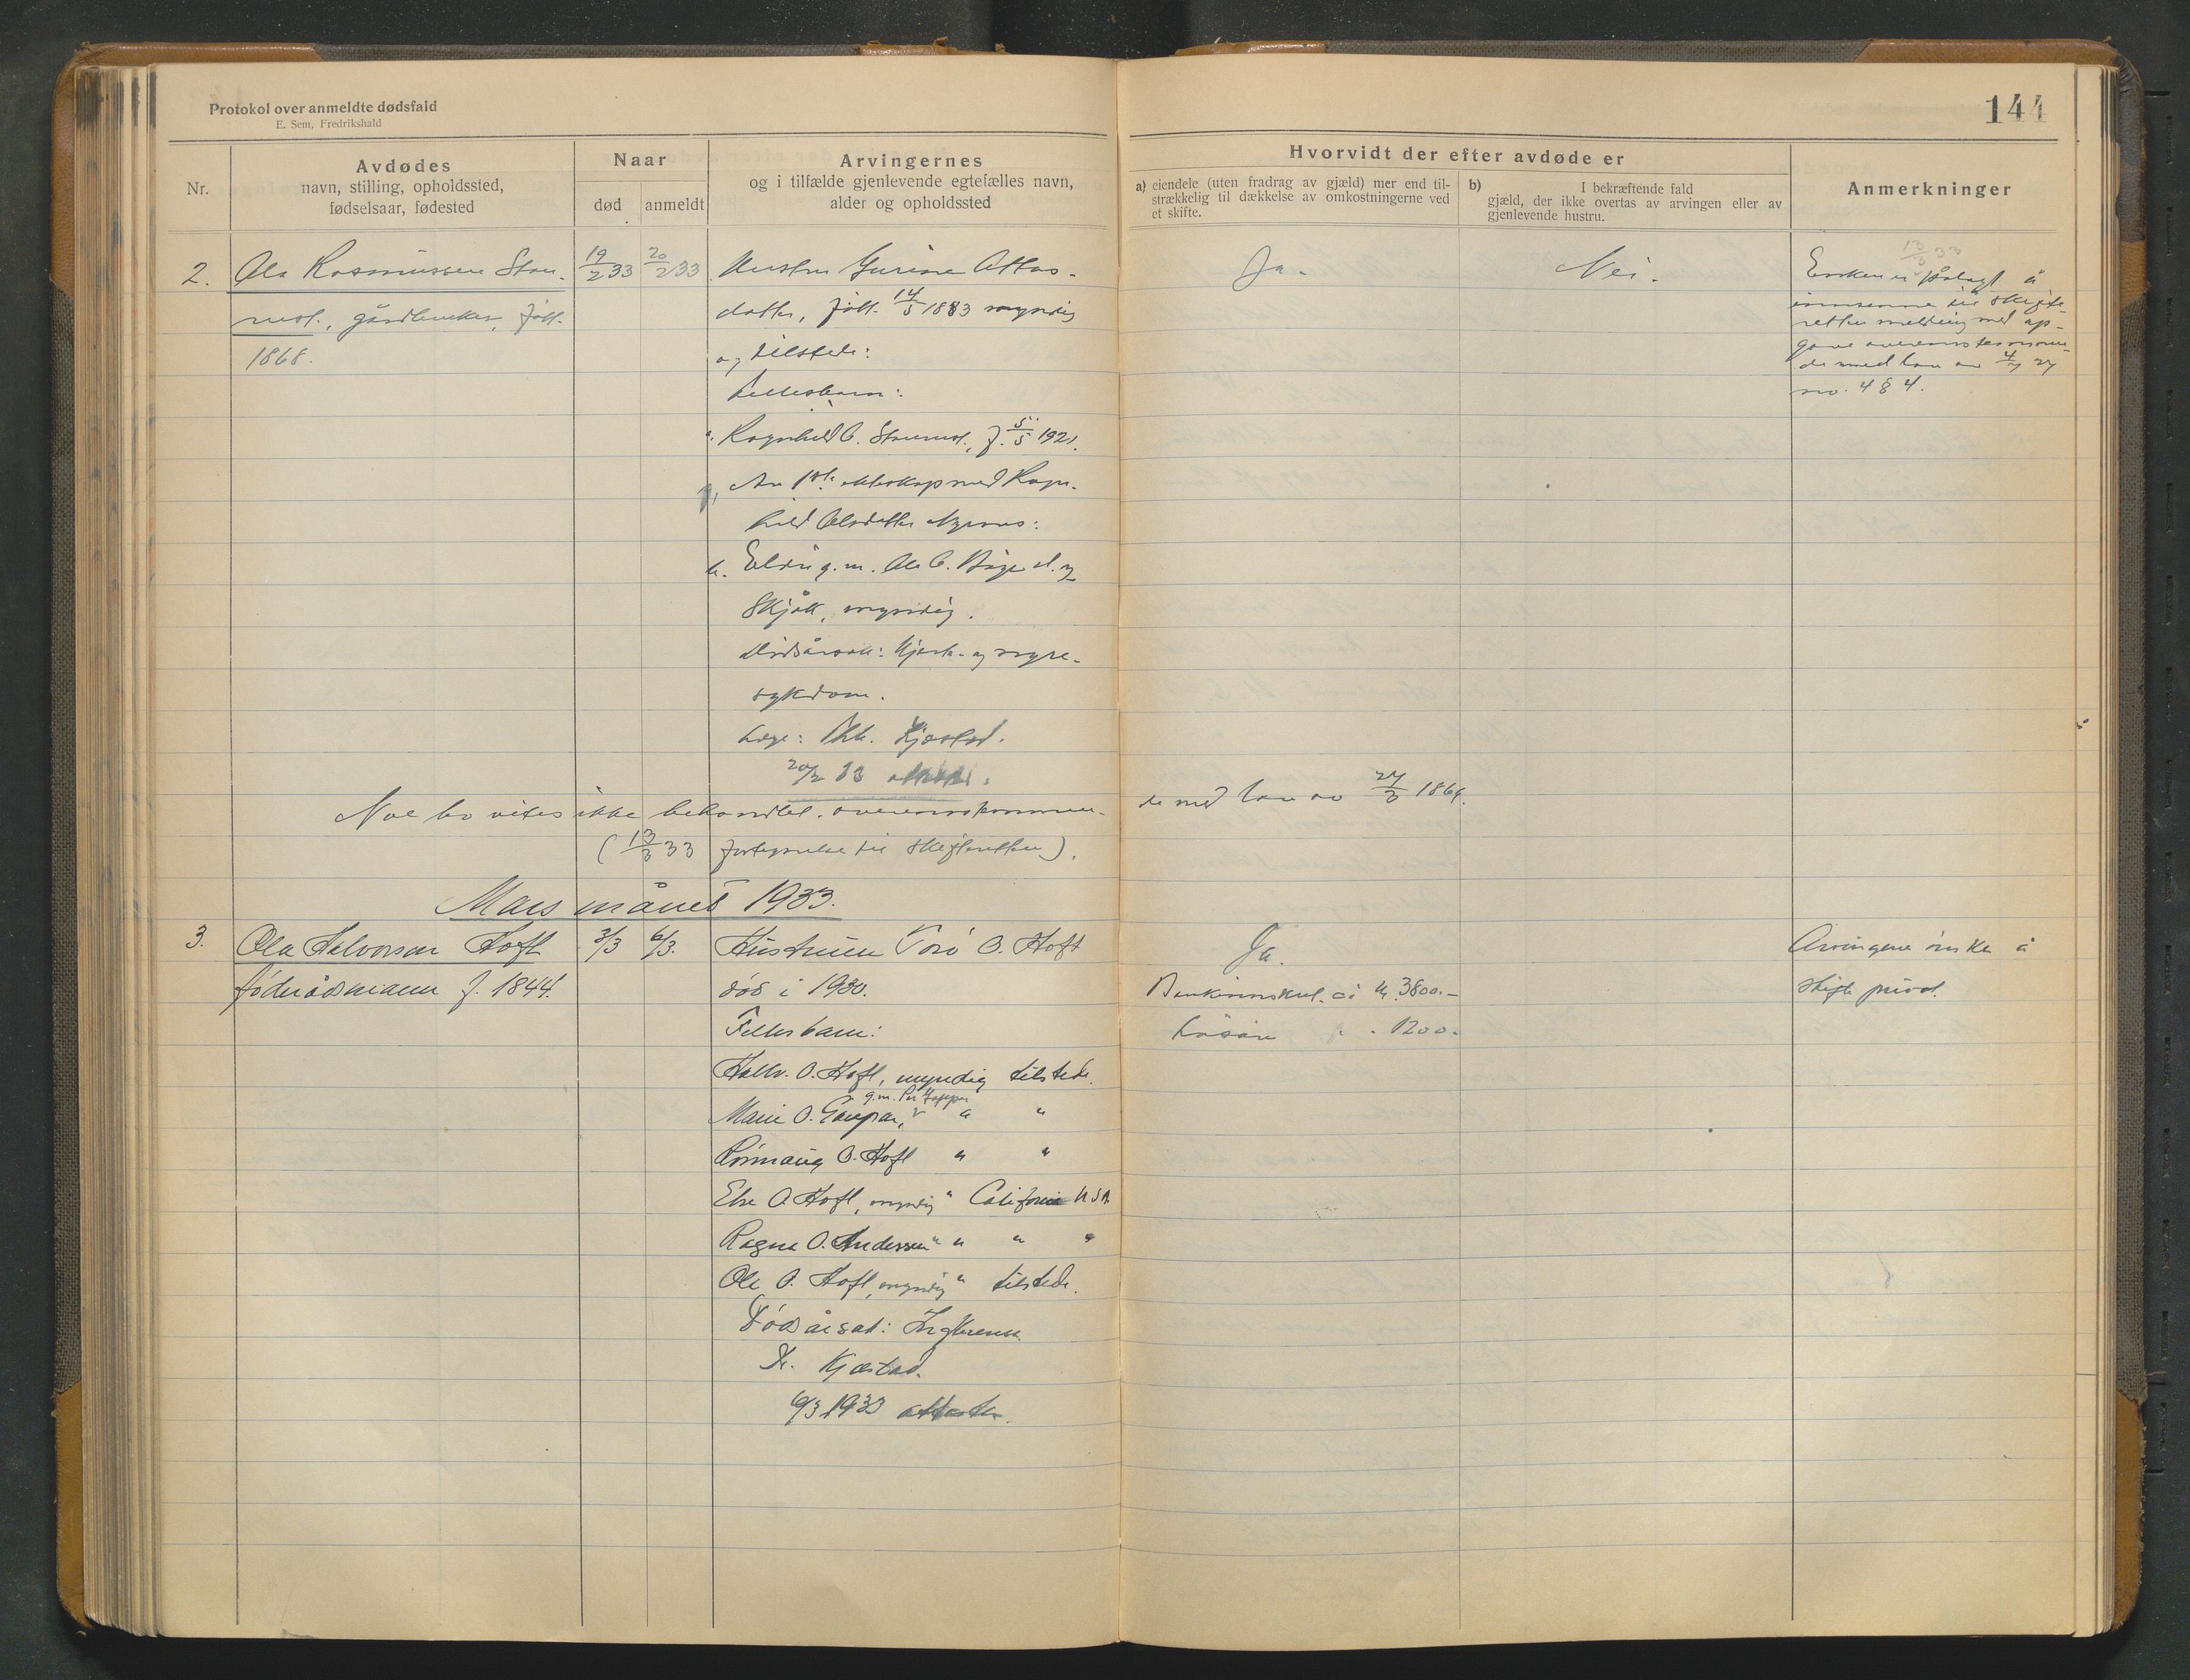 Protokol over anmeldte dødsfald
E. Sem, Fredrikshald
144
Nr.
Avdødes
navn, stilling, opholdssted,
fødselsaar, fødested
Naar
død
anmeldt
Arvingernes
og i tilfælde gjenlevende egtefælles navn,
alder og opholdssted
Hvorvidt der efter avdøde er
a) eiendele (uten fradrag av gjæld) mer end til-
strækkelig til dækkelse av omkostningerne ved
et skifte.
b) I bekræftende fald
gjæld, der ikke overtas av arvingen eller av
gjenlevende hustru.
Anmerkninger
2.
Ola Rasmussen
gårdbruker, født
1868.
19/2 33
20/2 33
Hustru Gurine
datter, født 14/5 1883 myndig
og tilstede:
Fellesbarn:
a. Ragnhild O. f. 5/5 1921.
Av 1ste ekteskap med Ragn-
hild Olsdatter
b. Eldri g. m. Ola O.
Skjåk, myndig.
Dødsårsak: Hjerte- og nyre-
sykdom.
Læge: Kjæstad.
20/2 33
Ja.
Nei.
13/3 33
Enken er pålagt å
innsende til skifte-
retten melding med op-
gave overensstemmen-
de med lov av 4/7 27
no. 4 § 4.
Noe bo vites ikke behandlet overensstemmen-
de med lov av 1869.
(13/3 33 til skifteretten).
Mars måned 1933.
3.
Ola Halvorsen Hoft
føderådsmann f. 1844.
3/3
6/3.
Hustruen O. Hoft
død i 1930.
Fellesbarn:
Halv. O. Hoft, myndig tilstede.
g.m. Per
Marie O. " "
Rønnaug O. Hoft " "
Else O. Hoft, myndig " California U S A
Ragna O. Andersen " " " "
Ole O. Hoft, myndig " tilstede.
Dødsårsak:
Dr. Kjæstad.
6/3 1933 attester.
Ja.
Bankinnskud ca kr. 3800.-
Løsøre " " 1200.-
Arvingene ønsker å
skifte privat.